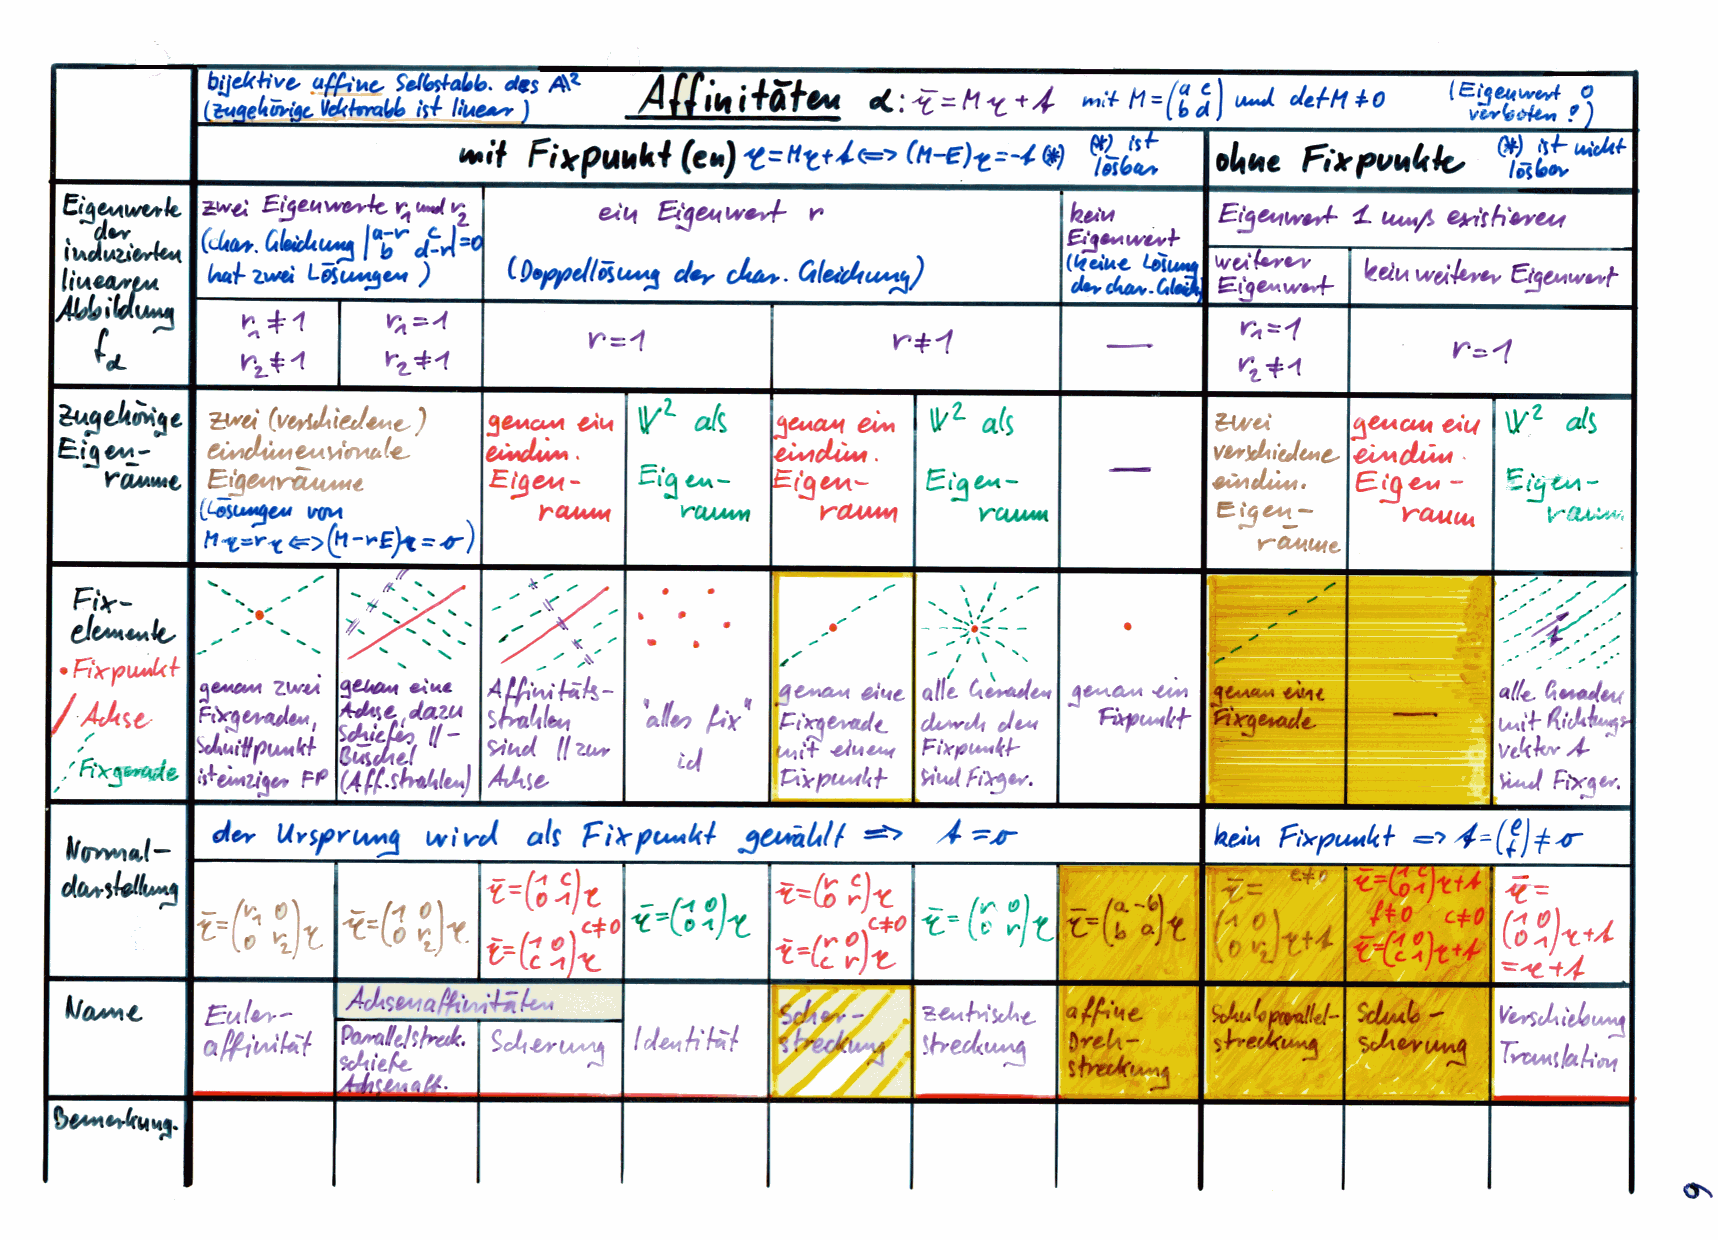 bijektive affine Selbstabb. des A²
(zugehörige Vektorabb ist linear)
Affinitäten α: x̄ = Mx + t mit M = (a c / b d) und det M ≠ 0
(Eigenwert 0 verboten!)
mit Fixpunkt(en) x = Mx + t <=> (M-E)x = -t (*)
(*) ist lösbar
ohne Fixpunkte
(*) ist nicht lösbar
Eigenwerte
der
induzierten
linearen
Abbildung
f_α
zwei Eigenwerte r₁ und r₂
(char. Gleichung |a-r c / b d-r| = 0
hat zwei Lösungen)
ein Eigenwert r
(Doppellösung der char. Gleichung)
kein
Eigenwert
(keine Lösung
der char. Gleich
Eigenwert 1 muß existieren
weiterer
Eigenwert
kein weiterer Eigenwert
r₁ ≠ 1
r₂ ≠ 1
r₁ = 1
r₂ ≠ 1
r = 1
r ≠ 1
—
r₁ = 1
r₂ ≠ 1
r = 1
zugehörige
Eigen-
räume
zwei (verschiedene)
eindimensionale
Eigenräume
(Lösungen von
Mx = rx <=> (M-rE)x = o)
genau ein
eindim.
Eigen-
raum
V² als
Eigen-
raum
genau ein
eindim.
Eigen-
raum
V² als
Eigen-
raum
—
zwei
verschiedene
eindim.
Eigen-
räume
genau ein
eindim.
Eigen-
raum
V² als
Eigen-
raum
Fix-
elemente
• Fixpunkt
/ Achse
Fixgerade
genau zwei
Fixgeraden,
Schnittpunkt
ist einziger FP
genau eine
Achse, dazu
schiefes ||-
Büschel
(Aff.strahlen)
Affinitäts-
strahlen
sind || zur
Achse
"alles fix"
id
genau eine
Fixgerade
mit einem
Fixpunkt
alle Geraden
durch den
Fixpunkt
sind Fixger.
genau ein
Fixpunkt
genau eine
Fixgerade
—
t
alle Geraden
mit Richtungs-
vektor t
sind Fixger.
Normal-
darstellung
der Ursprung wird als Fixpunkt gewählt => t = o
kein Fixpunkt => t = (e / f) ≠ o
x̄ = (r₁ 0 / 0 r₂) x
x̄ = (1 0 / 0 r₂) x
x̄ = (1 c / 0 1) x
c ≠ 0
x̄ = (1 0 / c 1) x
x̄ = (1 0 / 0 1) x
x̄ = (r c / 0 r) x
c ≠ 0
x̄ = (r 0 / c r) x
x̄ = (r 0 / 0 r) x
x̄ = (a -b / b a) x
x̄ = e ≠ 0
(1 0 / 0 r₂) x + t
x̄ = (1 c / 0 1) x + t
f ≠ 0 c ≠ 0
x̄ = (1 0 / c 1) x + t
x̄ =
(1 0 / 0 1) x + t
= x + t
Name
Euler-
affinität
Achsenaffinitäten
Parallelstreck.
schiefe
Achsenaff.
Scherung
Identität
Scher-
streckung
zentrische
streckung
affine
Dreh-
streckung
Schubparallel-
streckung
Schub-
scherung
Verschiebung
Translation
Bemerkung.
9